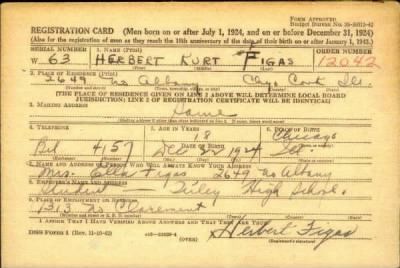 FORM APPROVED
REGISTRATION CARD (Men born on or after July 1, 1924, and on or before December 31, 1924)
(Also for the registration of men as they reach the 18th anniversary of the date of their birth on or after January 1, 1943.)
SERIAL NUMBER 1. NAME (Print) ORDER NUMBER
W 63 HERBERT KURT FIGAS 12042
2. PLACE OF RESIDENCE (Print)
2649 No Albany Chgo Cook Ill.
[THE PLACE OF RESIDENCE GIVEN ON LINE 2 ABOVE WILL DETERMINE LOCAL BOARD
JURISDICTION; LINE 2 OF REGISTRATION CERTIFICATE WILL BE IDENTICAL]
3. MAILING ADDRESS
Same
4. TELEPHONE 5. AGE IN YEARS 6. PLACE OF BIRTH
18 Chicago
DATE OF BIRTH
Bel 4157 Dec 1924 Ill.
7. NAME AND ADDRESS OF PERSON WHO WILL ALWAYS KNOW YOUR ADDRESS
Mrs. Ella Figas 2649 No Albany
8. EMPLOYER'S NAME AND ADDRESS
Student High School
9. PLACE OF EMPLOYMENT OR BUSINESS
1313 No. Claremont
I AFFIRM THAT I HAVE VERIFIED ABOVE ANSWERS AND THAT THEY ARE TRUE.
DSS Form 1 (Rev. 11-16-42) (OVER)
Herbert Figas
(Registrant's signature)